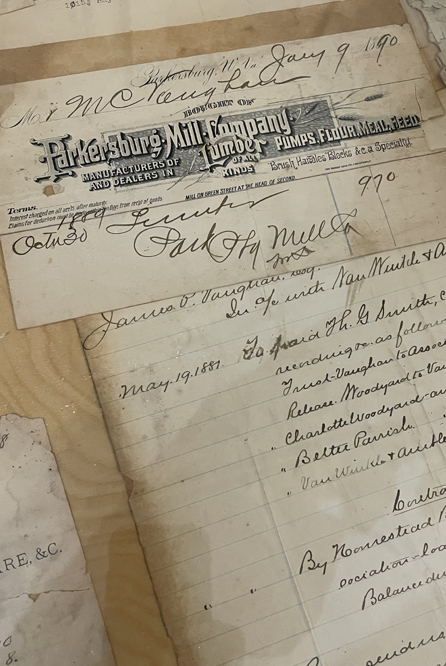 Parkersburg, W. Va. Jany 9 1890
Mr McVaughan
BOUGHT OF
Parkersburg Mill Company
MANUFACTURERS OF
AND DEALERS IN
Lumber
OF ALL
KINDS
PUMPS, FLOUR, MEAL, FEED
Brush Handles Blocks &c. a Specialty
Terms.
Interest charged on all accts. after maturity.
Claims for deduction must be from recpt of goods
MILL ON GREEN STREET AT THE HEAD OF SECOND.
1889
Octr 30 Lumber 970
Park Mill Co
James Vaughan, Esq.
In a/c with Van Winkle & A
May. 19. 1881. To paid Th. G Smith, c
recording as follow
Trust-Vaughan to Assoc
Release. Woodyard to Va
" Charlotte Woodyard-a
" Better Parrish.
" Van Winkle & Amble
By Homestead
sociation-loa
Balance du
RE, &C.